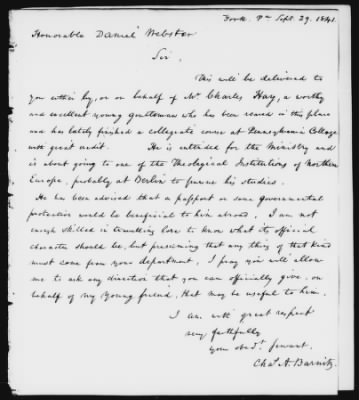 York. Pa Sept. 29. 1841.
Honorable Daniel Webster
Sir.
This will be delivered to
you either by, or on behalf of Mr Charles Hay, a worthy
and excellent young gentleman who has been reared in this place
and has lately finished a collegiate course at Pennsylvania College
with great credit. He is intended for the Ministry and
is about going to one of the Theological Institutions of Northern
Europe, probably at Berlin to pursue his studies.
He has been advised that a passport or some governmental
protection would be beneficial to him abroad. I am not
enough skilled in travelling lore to know what its official
character should be, but presuming that any thing of that kind
must come from your department, I pray you will allow
me to ask any direction that you can officially give, on
behalf of my young friend, that may be useful to him.
I am with great respect
very faithfully
your obedt. servant.
Chas. A. Barnitz